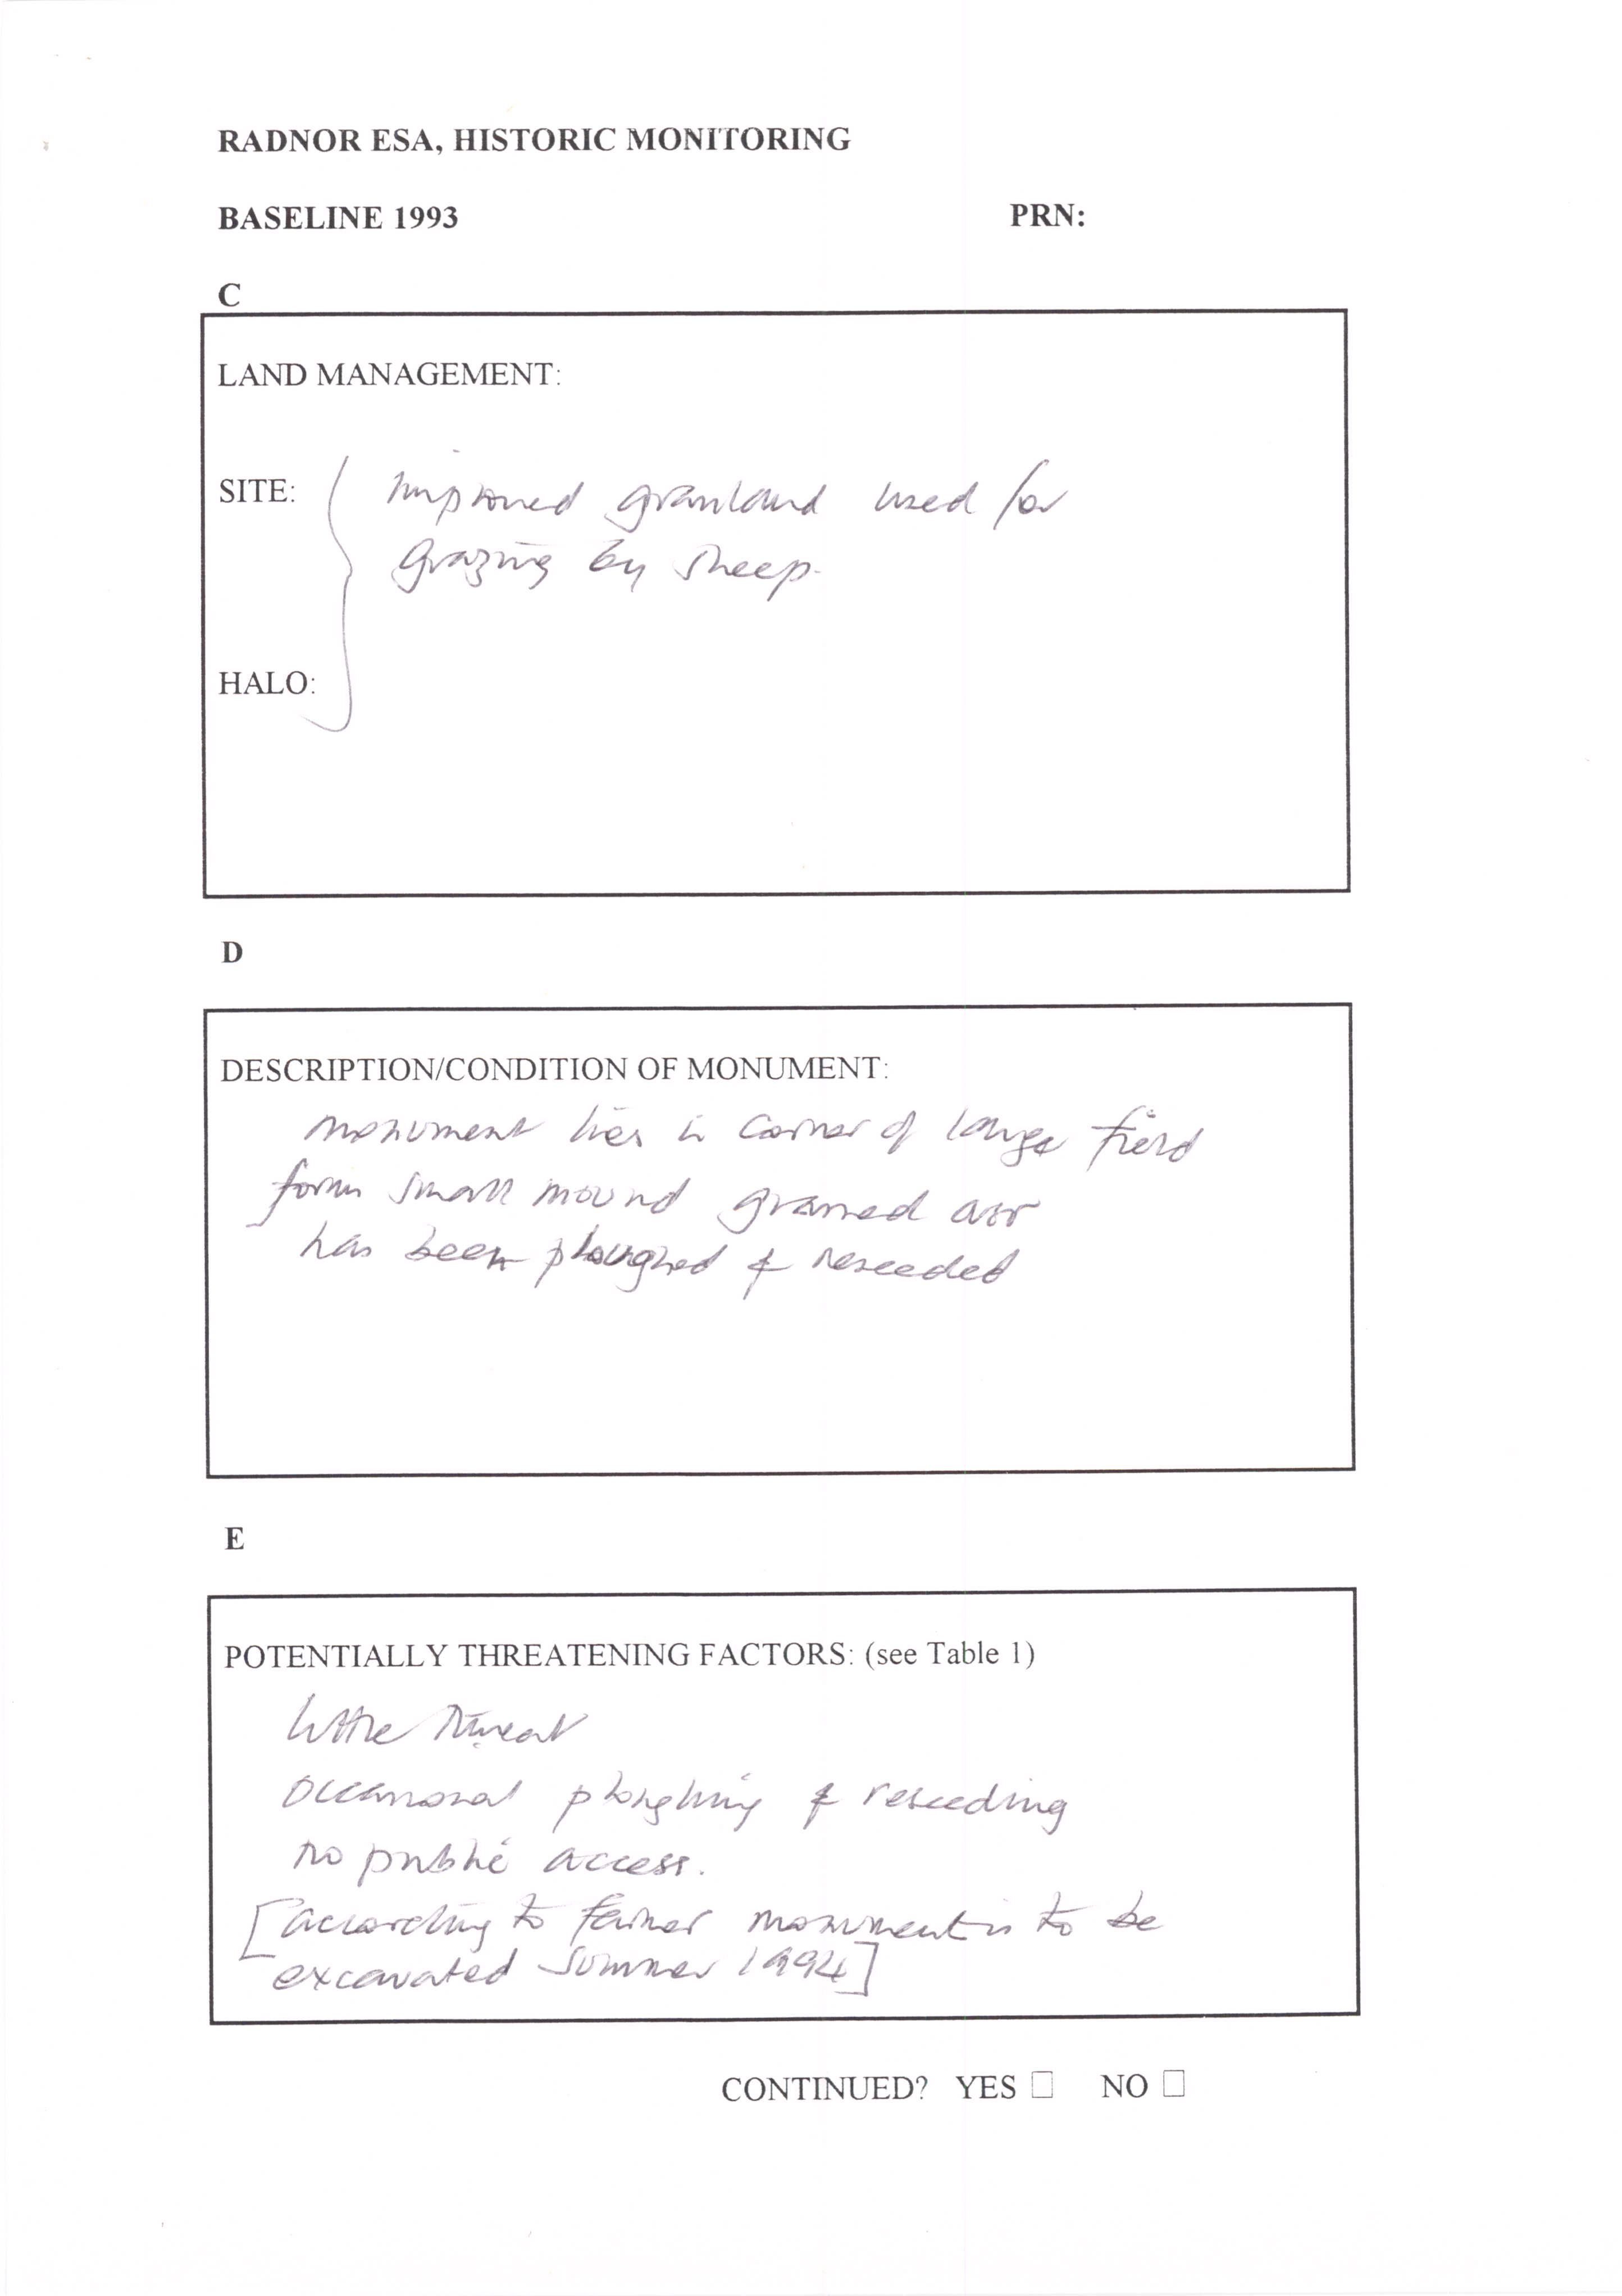 RADNOR ESA, HISTORIC MONITORING
BASELINE 1993 PRN:
C
LAND MANAGEMENT:
SITE: Improved grassland used for
grazing by sheep.
HALO:
D
DESCRIPTION/CONDITION OF MONUMENT:
monument lies in corner of large field
form small mound grassed over
has been ploughed & reseeded
E
POTENTIALLY THREATENING FACTORS: (see Table 1)
little threat
occasional ploughing & reseeding
no public access.
[according to farmer monument is to be
excavated summer 1994]
CONTINUED? YES ☐ NO ☐